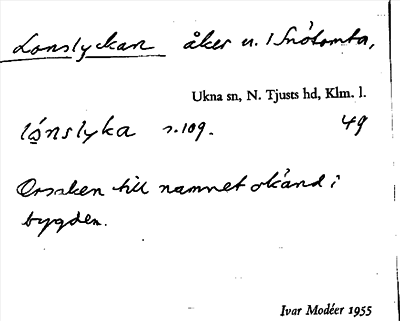 Lonslyckan åker u. 1 Snötomta,
Ukna sn, N. Tjusts hd, Klm. l.
lo̲nslyka s. 109. 49
Orsaken till namnet okänd i
bygden.
Ivar Modéer 1955